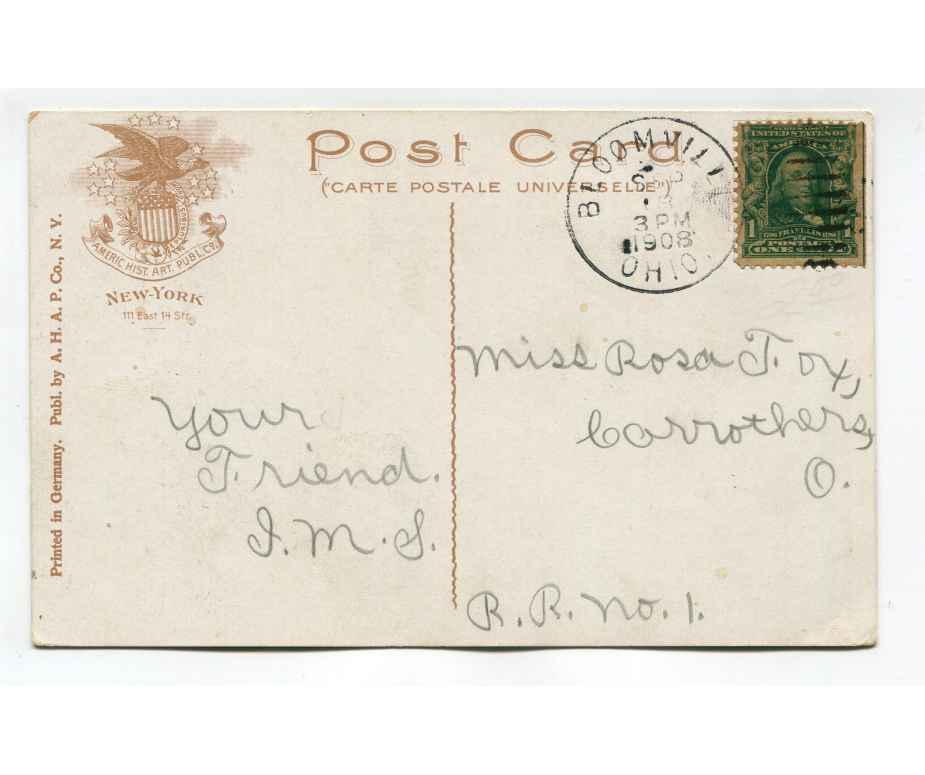 Post Card
("CARTE POSTALE UNIVERSELLE")
AMERIC. HIST. ART. PUBL. CO.
NEW-YORK
111 East 14 Str.
Printed in Germany. Publ. by A. H. A. P. Co., N. Y.
BLOOMVILLE
SEP
3 PM
1908
OHIO.
UNITED STATES OF
AMERICA
1 1
FRANKLIN
POSTAGE
ONE CENT
Your
Friend.
I. M. S.
Miss Rosa Fox,
Carrothers,
O.
R. R. No. 1.